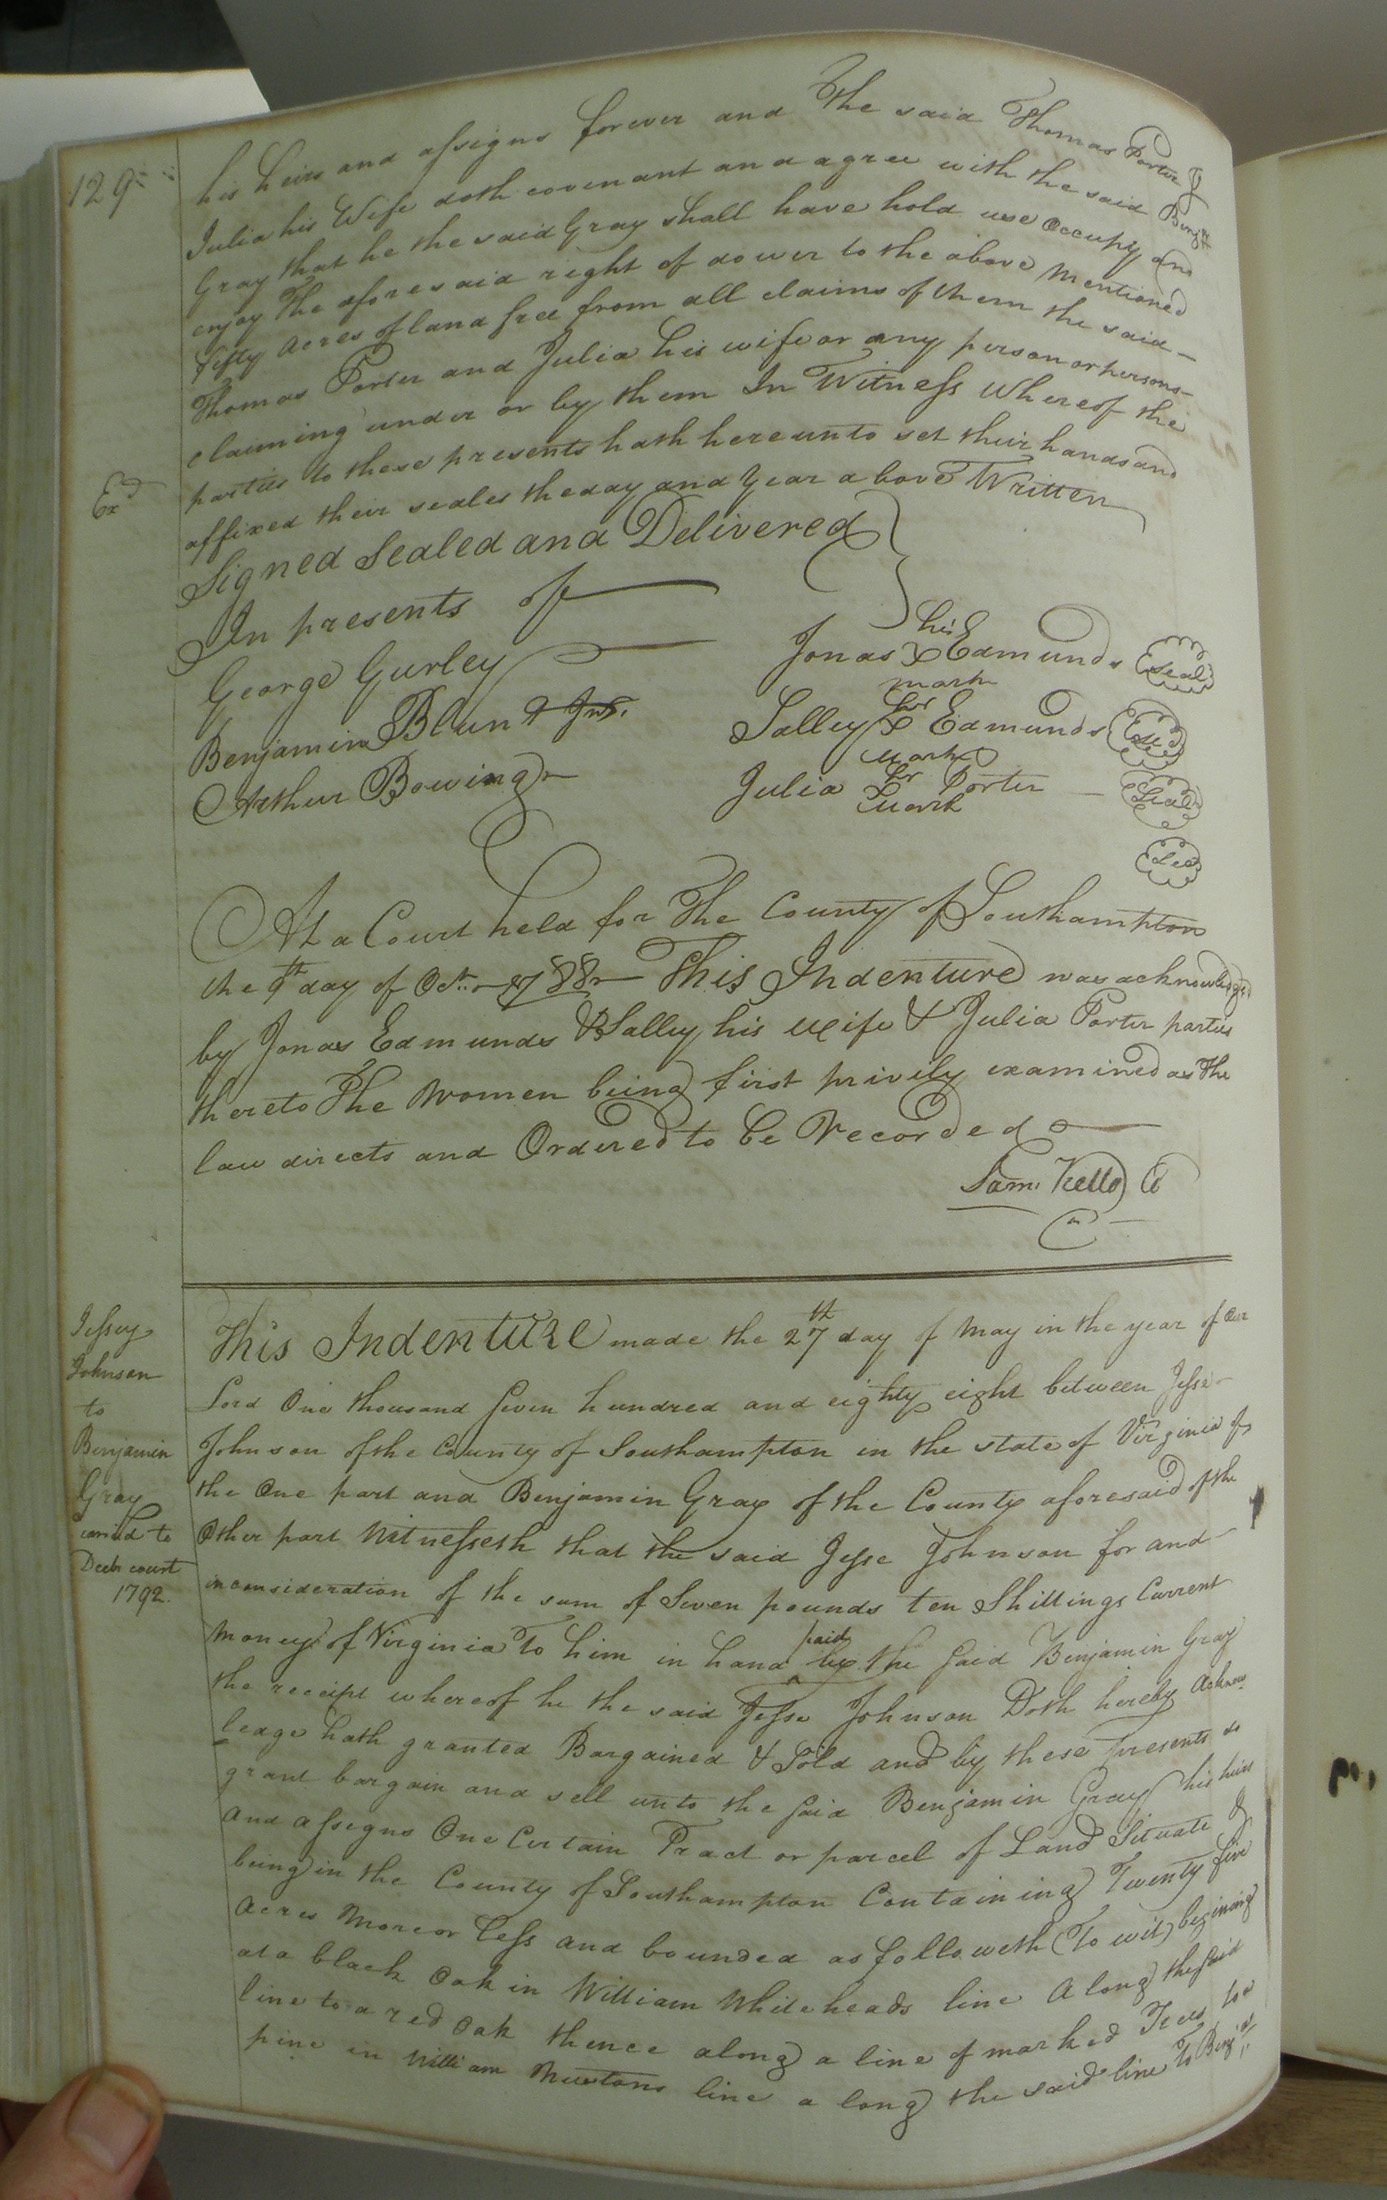 129
his heirs and assigns forever and The said Thomas Porter &
Julia his Wife doth covenant and agree with the said Benja
Gray that he the said Gray shall have hold use Occupy and
enjoy The aforesaid right of dower to the above mentioned
fifty acres of land free from all claims of them the said
Thomas Porter and Julia his wife or any person or persons
claiming under or by them In Witness Whereof the
parties to these presents hath hereunto set their hands and
affixed their seales the day and Year above Written
Exd
Signed Sealed and Delivered
In presents of
George Gurley
Benjamin Blunt Jnr.
Arthur Bowing
his
Jonas X Edmunds Seal
mark
her
Salley X Edmunds Seal
mark
her
Julia Porter Seal
mark
Seal
At a Court held for The County of Southampton
the 9th day of Octr. 1788 This Indenture was acknowledged
by Jonas Edmunds & Salley his Wife & Julia Porter parties
thereto The Women being first privily examined as the
law directs and Ordered to be Recorded
Sam. Kello Cl
Jessey
Johnson
to
Benjamin
Gray
Decr court
1792.
This Indenture made the 27th day of May in the year of our
Lord One thousand Seven hundred and eighty eight between Jesse
Johnson of the County of Southampton in the state of Virginia of
the One part and Benjamin Gray of the County aforesaid of the
Other part Witnesseth that the said Jesse Johnson for and
in consideration of the sum of Seven pounds ten Shillings Current
Money of Virginia To him in hand paid by the Said Benjamin Gray
the receipt whereof he the said Jesse Johnson Doth hereby Acknow
ledge hath granted Bargained & Sold and by these presents do
grant bargain and sell unto the Said Benjamin Gray his heirs
and assigns One Certain Tract or parcel of Land Situate &
being in the County of Southampton Containing Twenty five
Acres More or Less and bounded as followeth (To wit) begining
at a black Oak in William Whiteheads line Along the Said
line to a red Oak thence along a line of marked Trees to a
pine in William Newtons line a long the said line To Benja